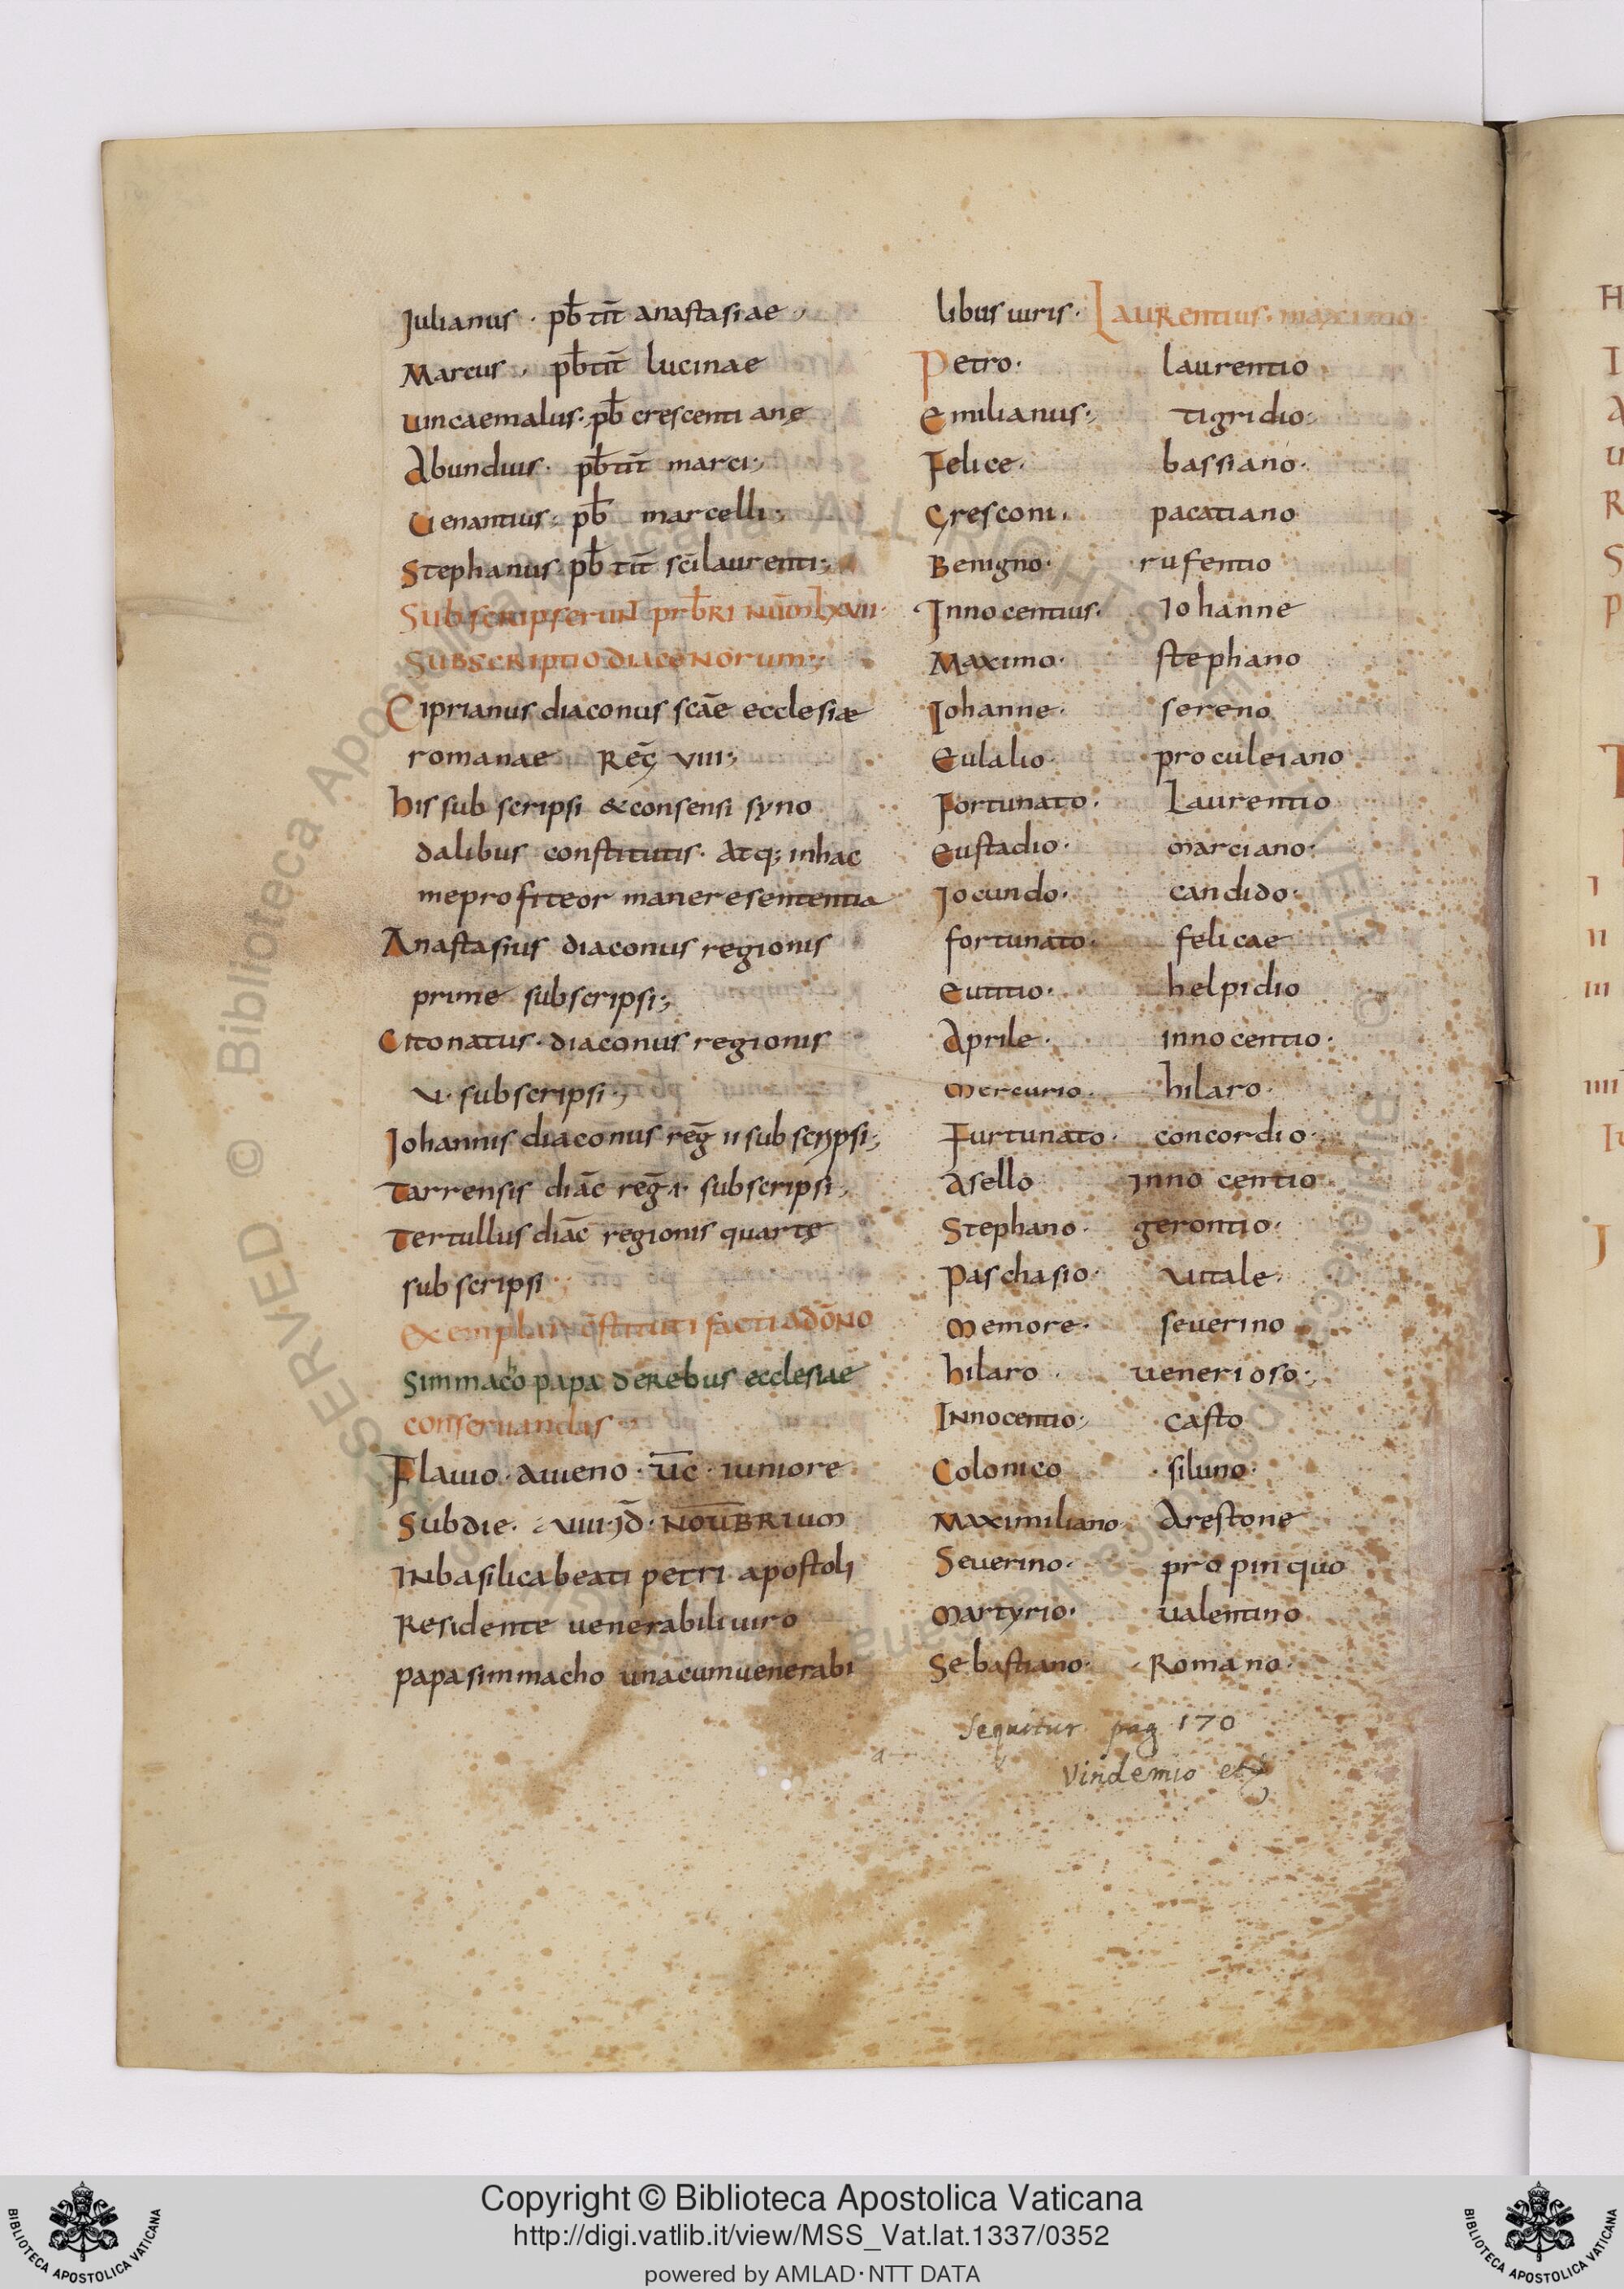 Julianus · pb̄ tit̄ anastasiae ·
Marcus · pb̄ tit̄ lucinae
uincaemalus · pb̄ crescenti anę
Abundius · pb̄ tit̄ marci;
Uenantius · pb̄ marcelli;
Stephanus · pb̄ tit̄ scī laurenti;
Subscripserunt prb̄ri num̄ lxvii ·
Subscriptio diaconorum;
Ciprianus diaconus scāe ecclesiæ
romanae Reḡ viii;
his sub scripsi & consensi syno
dalibus constitutis · Atq; in hac
me profiteor manere sententia
Anastasius diaconus regionis
prime subscripsi;
Citonatus · diaconus regionis
vi · subscripsi;
Johannis diaconus reḡ ii sub scripsi;
Tarrensis diac̄ reḡ i · subscripsi;
Tertullus diac̄ regionis quartę
sub scripsi
Simmacho papa de rebus ecclesiae
conseruandas
Flauio · auieno · uc̄ · iuniore
Sub die · viiii · id̄ · nouēbrium
In basilica beati petri apostoli
Residente uenerabili uiro
papa simmacho una cum uenerabi
libus uiris · Laurentius · maximo ·
Petro · laurentio
Emilianus; tigridio;
Felice · bassiano ·
Cresconi · pacatiano
Benigno · rufentio
Innocentius · Iohanne
Maximo · stephano
Iohanne · sereno
Eulalio · proculeiano
Fortunato · Laurentio
Eustadio · marciano ·
Jocundo · candido ·
fortunato · felicae
Eutitio · helpidio
Aprile · innocentio ·
Mercurio · hilaro ·
Furtunato · concordio ·
Asello Inno centio
Stephano · gerontio ·
Paschasio · uitale ·
Memore · seuerino
hilaro · uenerioso;
Innocentio; casto
Colonico · siluno ·
Maximiliano Arestone
Seuerino · propinquo
Martyrio · ualentino
Sebastiano · Romano ·
Sequitur pag 170
Vindemio etc
Copyright © Biblioteca Apostolica Vaticana
http://digi.vatlib.it/view/MSS_Vat.lat.1337/0352
powered by AMLAD·NTT DATA
BIBLIOTECA APOSTOLICA VATICANA
BIBLIOTECA APOSTOLICA VATICANA